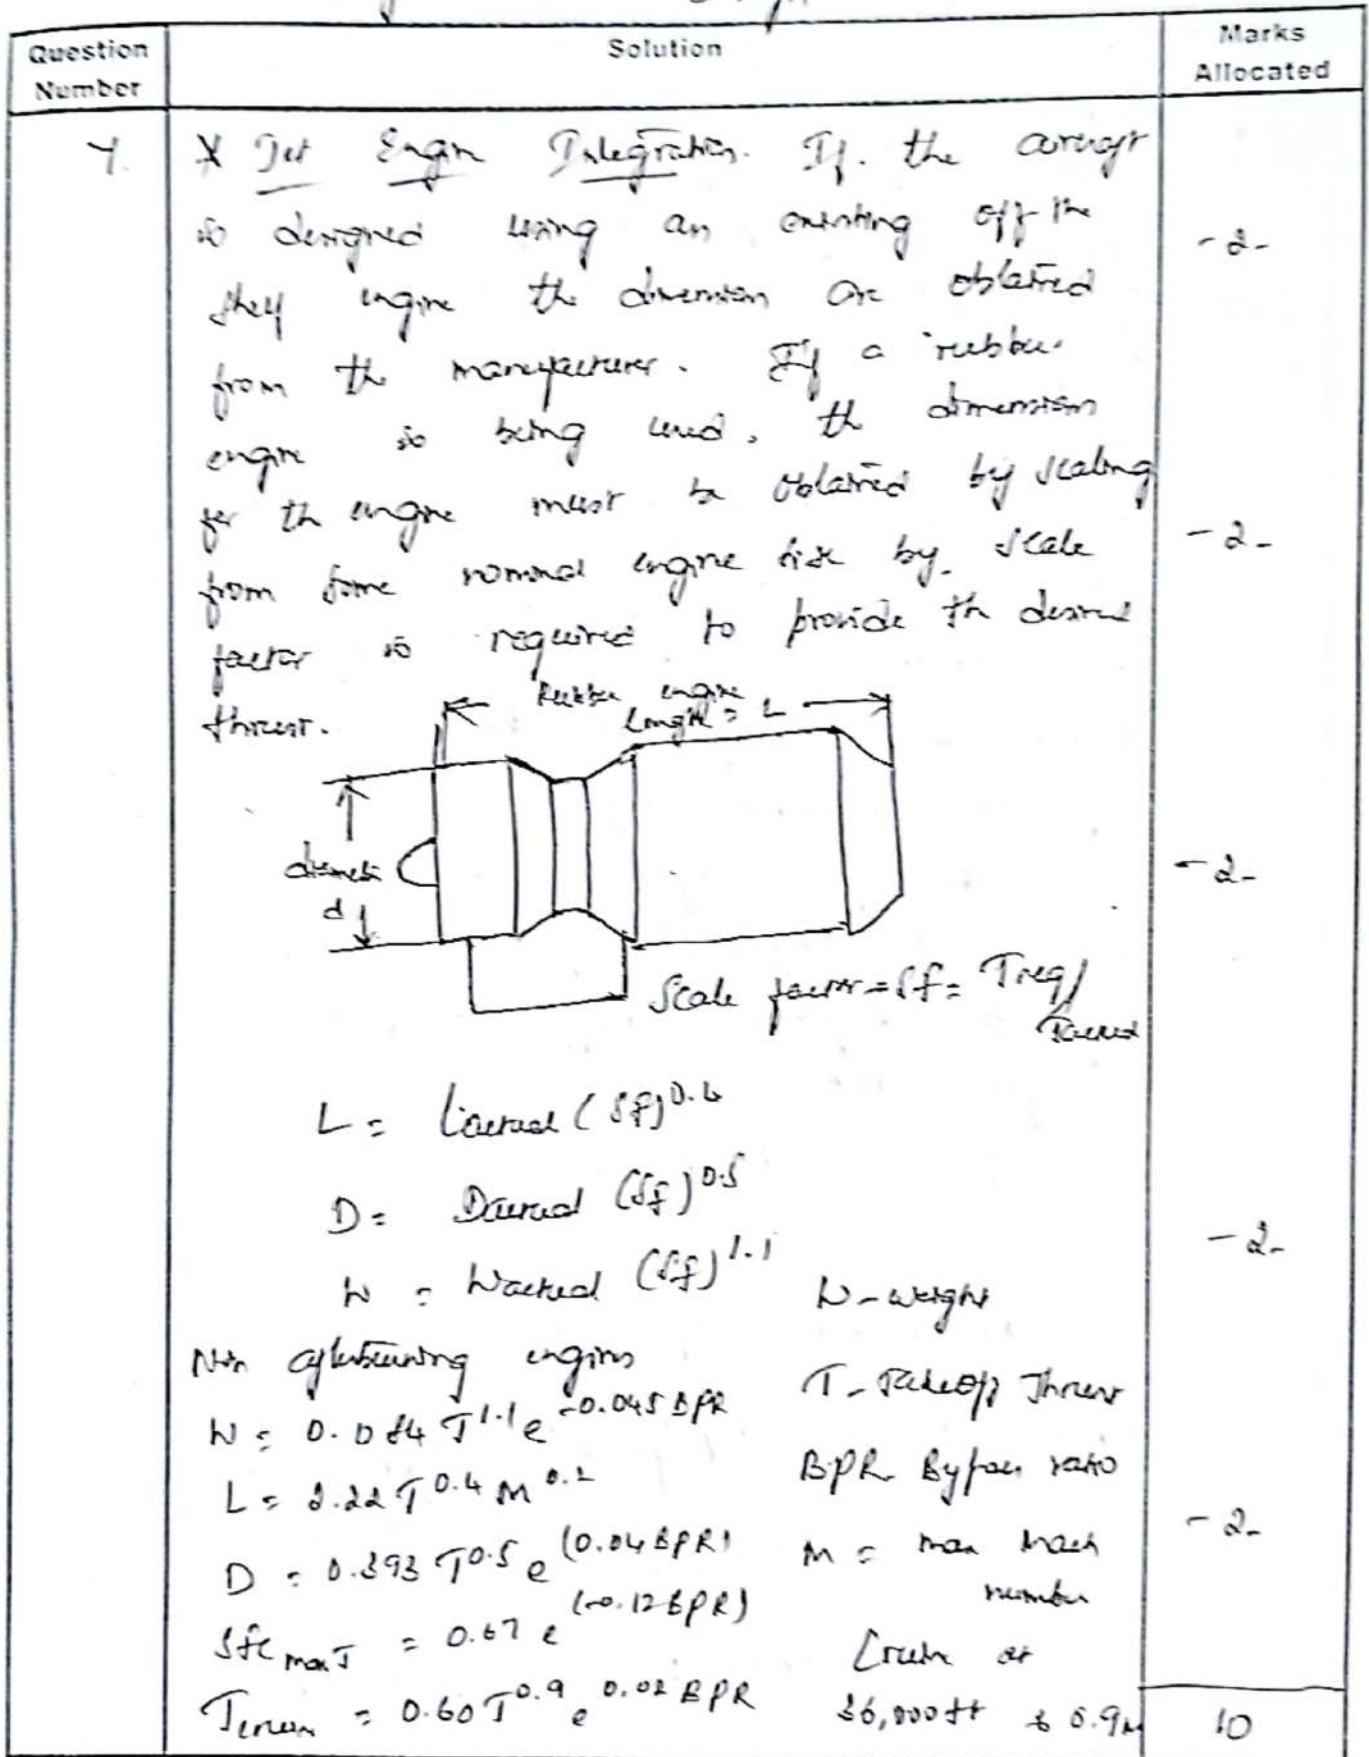 Question Number
Solution
Marks Allocated
7.
* Jet Engin Integration. If. the aircraft
is designed using an existing off the
-2-
shelf engine the dimension are obtained
from the manufacturer. If a rubber
engine is being used, the dimension
for th engine must be obtained by scaling
-2-
from some nominal engine size by scale
factor is required to provide th desired
thrust.
Rubber engine
Length = L
diameter
d
-2-
Scale factor = Sf = Treq/
Tactual
L = Lactual (Sf)0.4
D = Dactual (Sf)0.5
-2-
W = Wactual (Sf)1.1
W - weight
Non afterburning engines
T - Takeoff Thrust
W = 0.084 T1.1 e-0.045 BPR
BPR Bypass ratio
L = 2.22 T0.4 M0.2
-2-
D = 0.393 T0.5 e(0.04 BPR)
M = max Mach
number
Sfc max T = 0.67 e(-0.12 BPR)
Cruise at
Tcruise = 0.60 T0.9 e0.02 BPR
36,000 ft & 0.9M
10